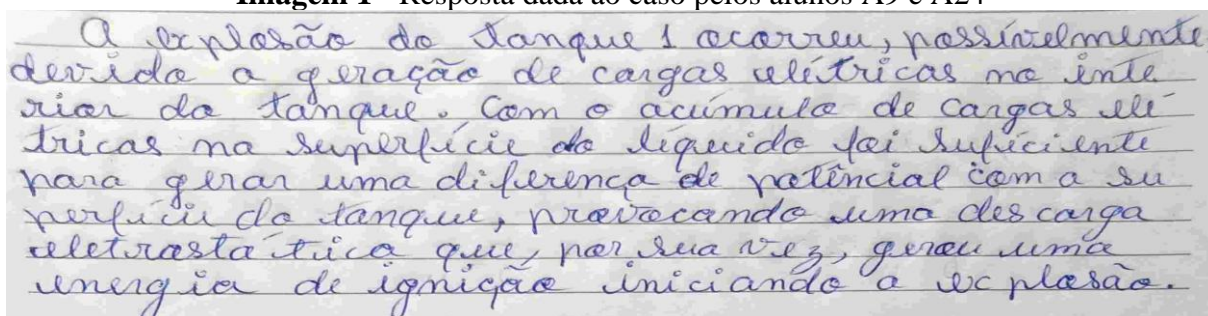 Imagem 1 - Resposta dada ao caso pelos alunos A9 e A24
A explosão do tanque 1 ocorreu, possivelmente
devido a geração de cargas elétricas no inte
rior do tanque. Com o acúmulo de cargas elé
tricas na superfície do líquido foi suficiente
para gerar uma diferença de potêncial com a su
perfície do tanque, provocando uma descarga
eletrostática que, por sua vez, gerou uma
energia de ignição iniciando a explosão.